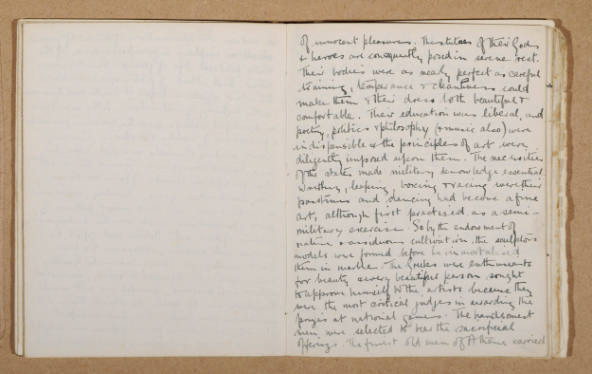 of innocent pleasures. The statues of their Gods
& heroes are consequently posed in serene rest.
Their bodies were as nearly perfect as careful
training, temperance & cleanliness could
make them & their dress both beautiful &
comfortable. Their education was liberal, and
poetry, politics & philosophy (& music also) were
indispensible & the principles of art were
diligently imposed upon them. The necessities
of the state made military knowledge essential
Wrestling, leaping, boxing & racing were their
pastimes and dancing had become a fine
art, although first practised as a semi-
military exercise. So by the endowment of
nature & assiduous cultivation, the sculptor's
models were formed before he immortalised
them in marble. The Greeks were enthusiasts
for beauty & every beautiful person sought
to approve himself to the artists because they
were the most critical judges in awarding the
prizes at national games. The handsomest
men were selected to bear the sacrificial
offerings. The finest old men of Athens carried